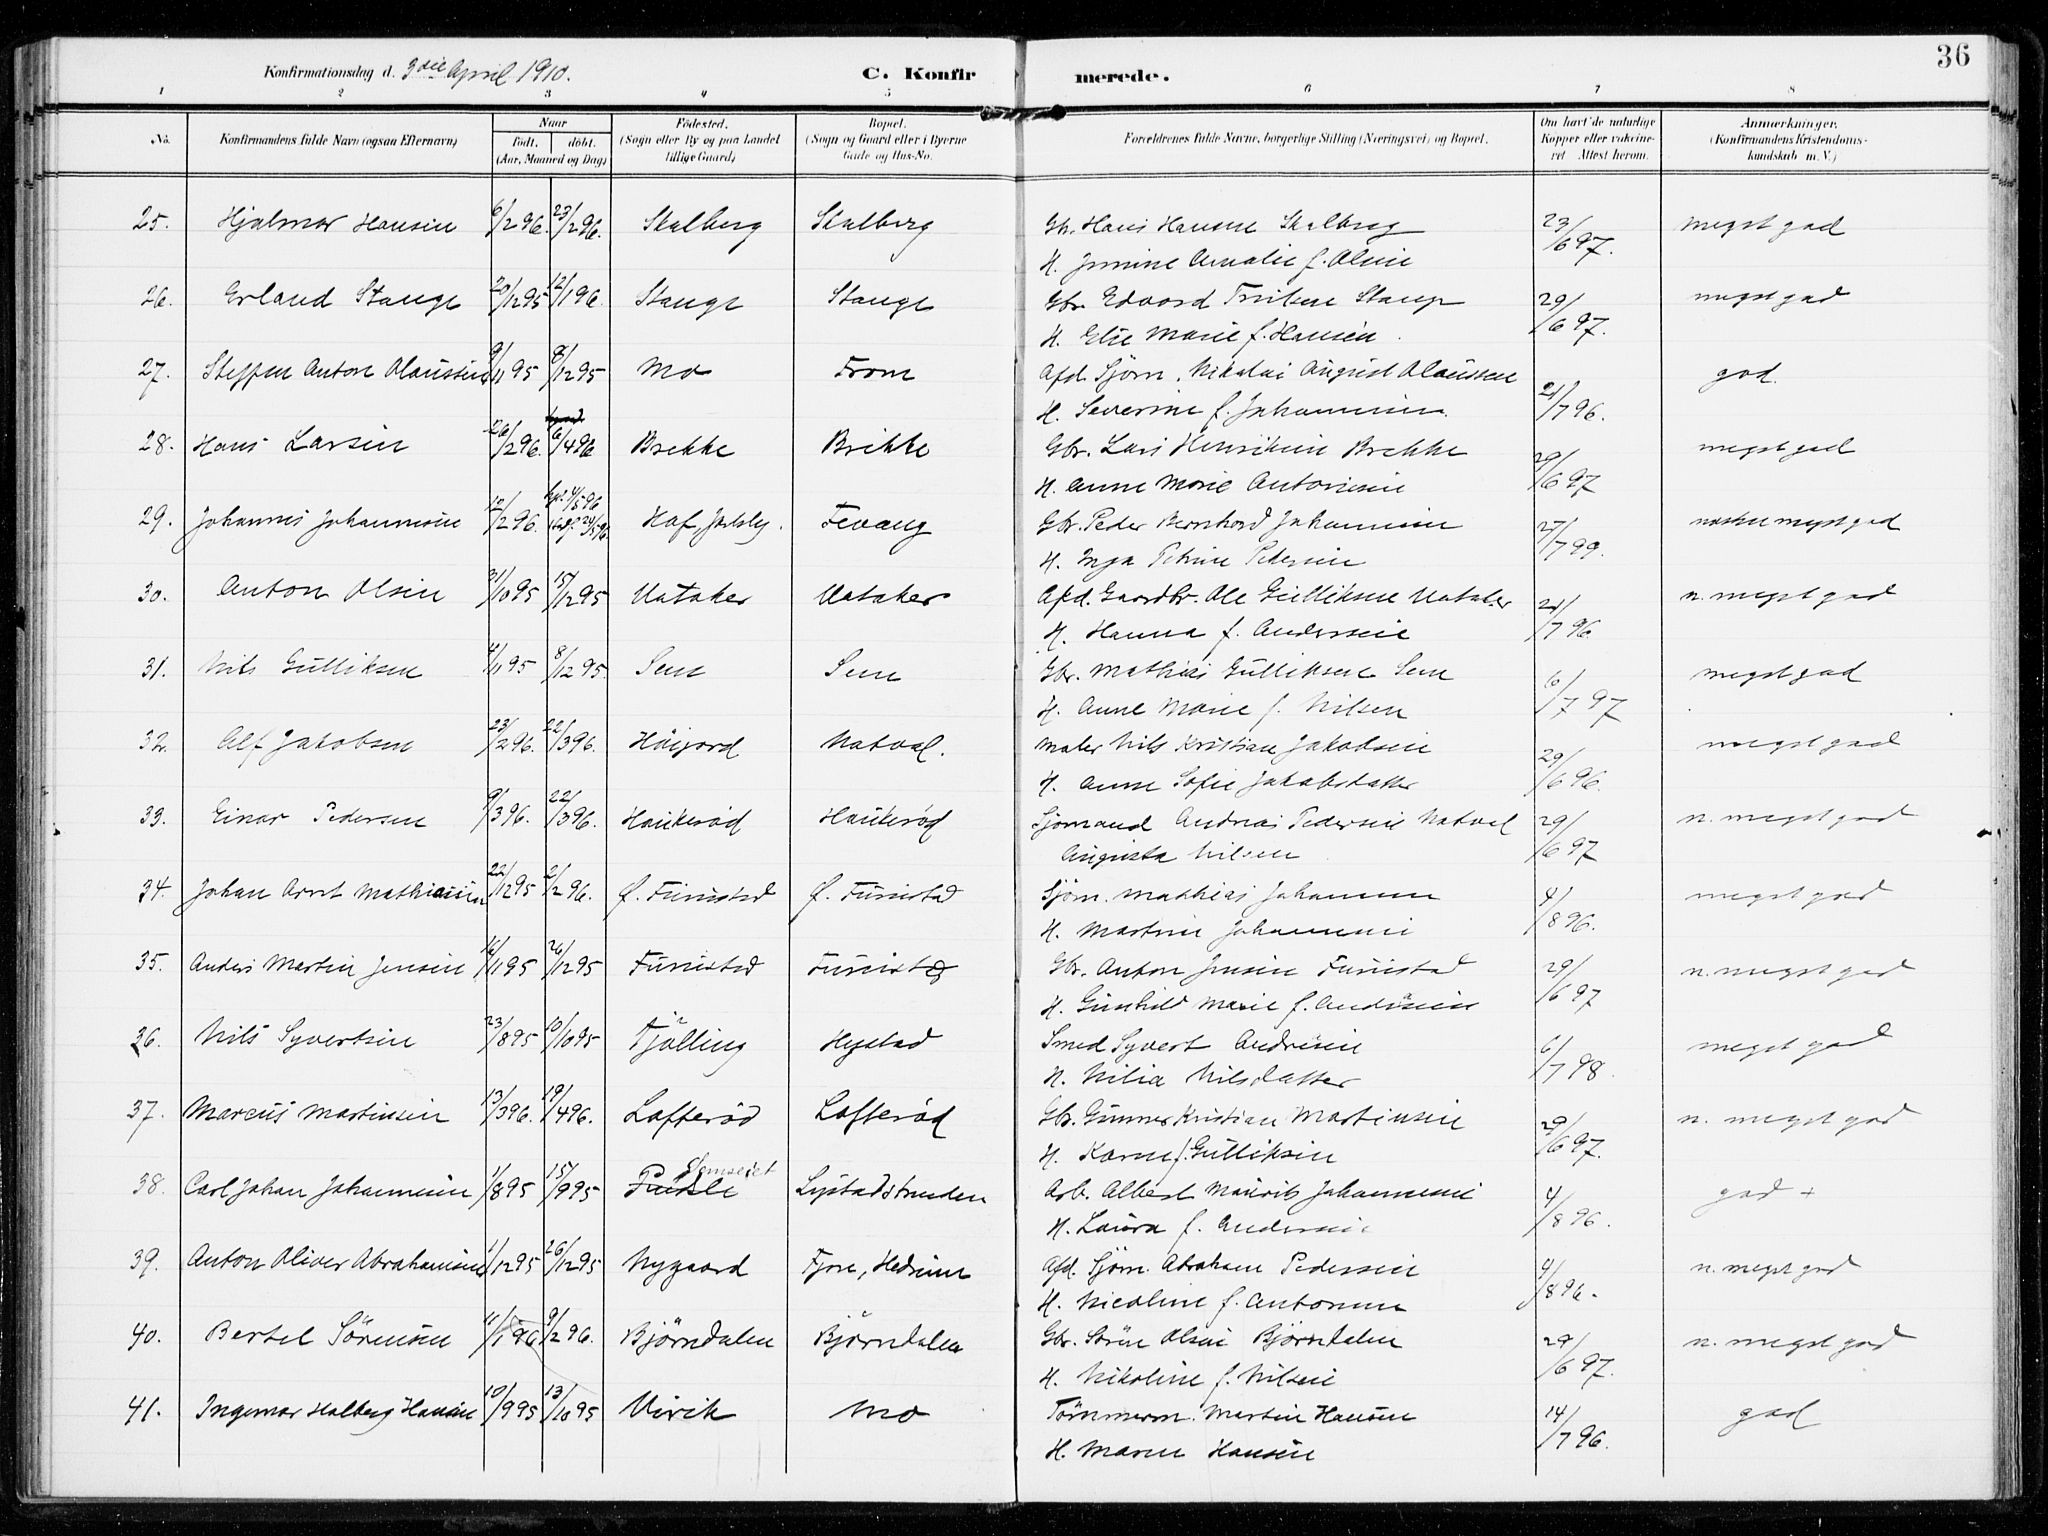 36
Konfirmationsdag d. 3die April 1910. C. Konfirmerede.
1 2 3 4 5 6 7 8
No. Konfirmandens fulde Navn (ogsaa Efternavn) Naar født. døbt. (Aar, Maaned og Dag) Fødested. (Sogn eller By og paa Landet tillige Gaard) Bopæl. (Sogn og Gaard eller i Byerne Gade og Hus-No. Forældrenes fulde Navne, borgerlige Stilling (Næringsvei) og Bopæl. Om havt de naturlige Kopper eller vakcineret Attest herom. Anmærkninger. (Konfirmandens Kristendomskundskab m. V.)
25. Hjalmar Hansen 6/2 96. 23/2 96. Skalberg Skalberg Gb. Hans Hansen Skalberg 23/6 97. meget god
H. Jensine Amalie f. Olsen
26. Erland Stange 20/12 95 12/1 96. Stange Stange Gbr. Edvard Stange 29/6 97. meget god
H. Elise Marie f. Hansen
27. Steffen Anton Olaussen 9/11 95 8/12 95 Mo From Afd. Sjöm. Nikolai August Olaussen 21/7 96. god.
H. Severine f. Johannesen
28. Hans Larsen 26/2 96. 6/4 96 Brekke Brekke Gbr. Lars Henriksen Brekke 29/6 97 meget god
H. Anne Marie Antonsen
29. Johannes Johannesen 12/2 96. Hof, Jarlsbg. Fevang Gbr. Peder Bernhard Johannesen 27/7 99. næsten meget god
H. Inga Petrine Pedersen
30. Anton Olsen 31/10 95 15/12 95 Untaker Afd. Gaardbr. Ole Gulliksen 21/7 96 n. meget god
H. Hanna f. Andersen
31. Nils Gulliksen 4/11 95 8/12 95. Sem Sem Gbr. Mathias Gulliksen Sem 6/7 97 meget god
H. Anne Marie f. Nilsen
32. Alf Jakobsen 23/2 96. 22/3 96. Høijord Natval. Maler Nils Kristian Jakobsen 29/6 96. meget god
H. Anne Sofie Jakobsdatter
33. Einar Pedersen 9/3 96. 22/3 96. Haukerød Haukerød Sjömand Andreas Pedersen Natval 29/6 97 n. meget god
Augusta Nilsen
34. Johan Arnt Mathiassen 22/12 95 2/2 96. Ø. Furustad Ø. Furustad Sjöm. Mathias Johannesen 4/8 96. meget god
H. Martine Johannesen
35. Anders Martin Jensen 16/11 95 26/12 95 Furustad Furustad Gbr. Anton Jensen Furustad 29/6 97 n. meget god
H. Gunhild Marie f. Andersen
36. Nils Syvertsen 23/8 95 10/10 95 Tjölling Hystad Smed Syvert Andresen 6/7 98. meget god
H. Nilia Nilsdatter
37. Marcus Martinsen 13/3 96. 19/4 96. Lofterød Lofterød Gbr. Gunner Kristian Martinsen 29/6 97. n. meget god
H. Karen f. Gulliksen
38. Carl Johan Johannesen 1/8 95 15/9 95 Lystadstranden Arb. Albert Maurits Johannesen 4/8 96. god +
H. Laura f. Andersen
39. Anton Oliver Abrahamsen 1/12 95 26/12 95 Nygaard Fjære, Hedrum Afd. Sjöm. Abraham Pedersen 4/8 96. n. meget god
H. Nicoline f. Antonsen
40. Bertel Sörensen 11/1 96 9/2 96. Björndalen Björndalen Gbr. Sören Olsen Björndalen 29/6 97. n. meget god
H. Nikoline f. Nilsen
41. Ingemar Halberg Hansen 10/9 95 13/10 95 Virik Mo Tömmerm. Martin Hansen 14/7 96. god
H. Maren Hansen